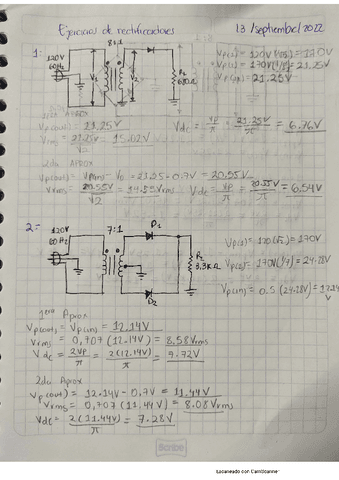 Ejercicios de rectificadores 13/septiembre/2022
1:
8:1
120V
60Hz
V1
V2
RL
680Ω
Vp(1) = 120V(√2) = 170V
Vp(2) = 170V(1/8) = 21.25V
Vp(in) = 21.25V
1era Aprox
Vp(out) = 21.25V
Vrms = 21.25V/√2 = 15.02V
Vdc = Vp/π = 21.25V/π = 6.76V
2da Aprox
Vp(out) = Vp(in) - V0 = 21.25 - 0.7V = 20.55V
Vrms = 20.55V/√2 = 14.53Vrms Vdc = Vp/π = 20.55V/π = 6.54V
2:
7:1
D1
120V
60 Hz
RL
3.3KΩ
D2
Vp(1) = 120(√2) = 170V
Vp(2) = 170V(1/7) = 24.28V
Vp(in) = 0.5 (24.28V) = 12.14V
1era Aprox
Vp(out) = Vp(in) = 12.14V
Vrms = 0,707 (12.14V) = 8.58Vrms
Vdc = 2Vp/π = 2(12.14V)/π = 9.72V
2da Aprox
Vp(out) = 12.14V - 0,7V = 11.44V
Vrms = 0,707 (11.44V) = 8.08Vrms
Vdc = 2(11.44V)/π = 7.28V
Scribe
Escaneado con CamScanner